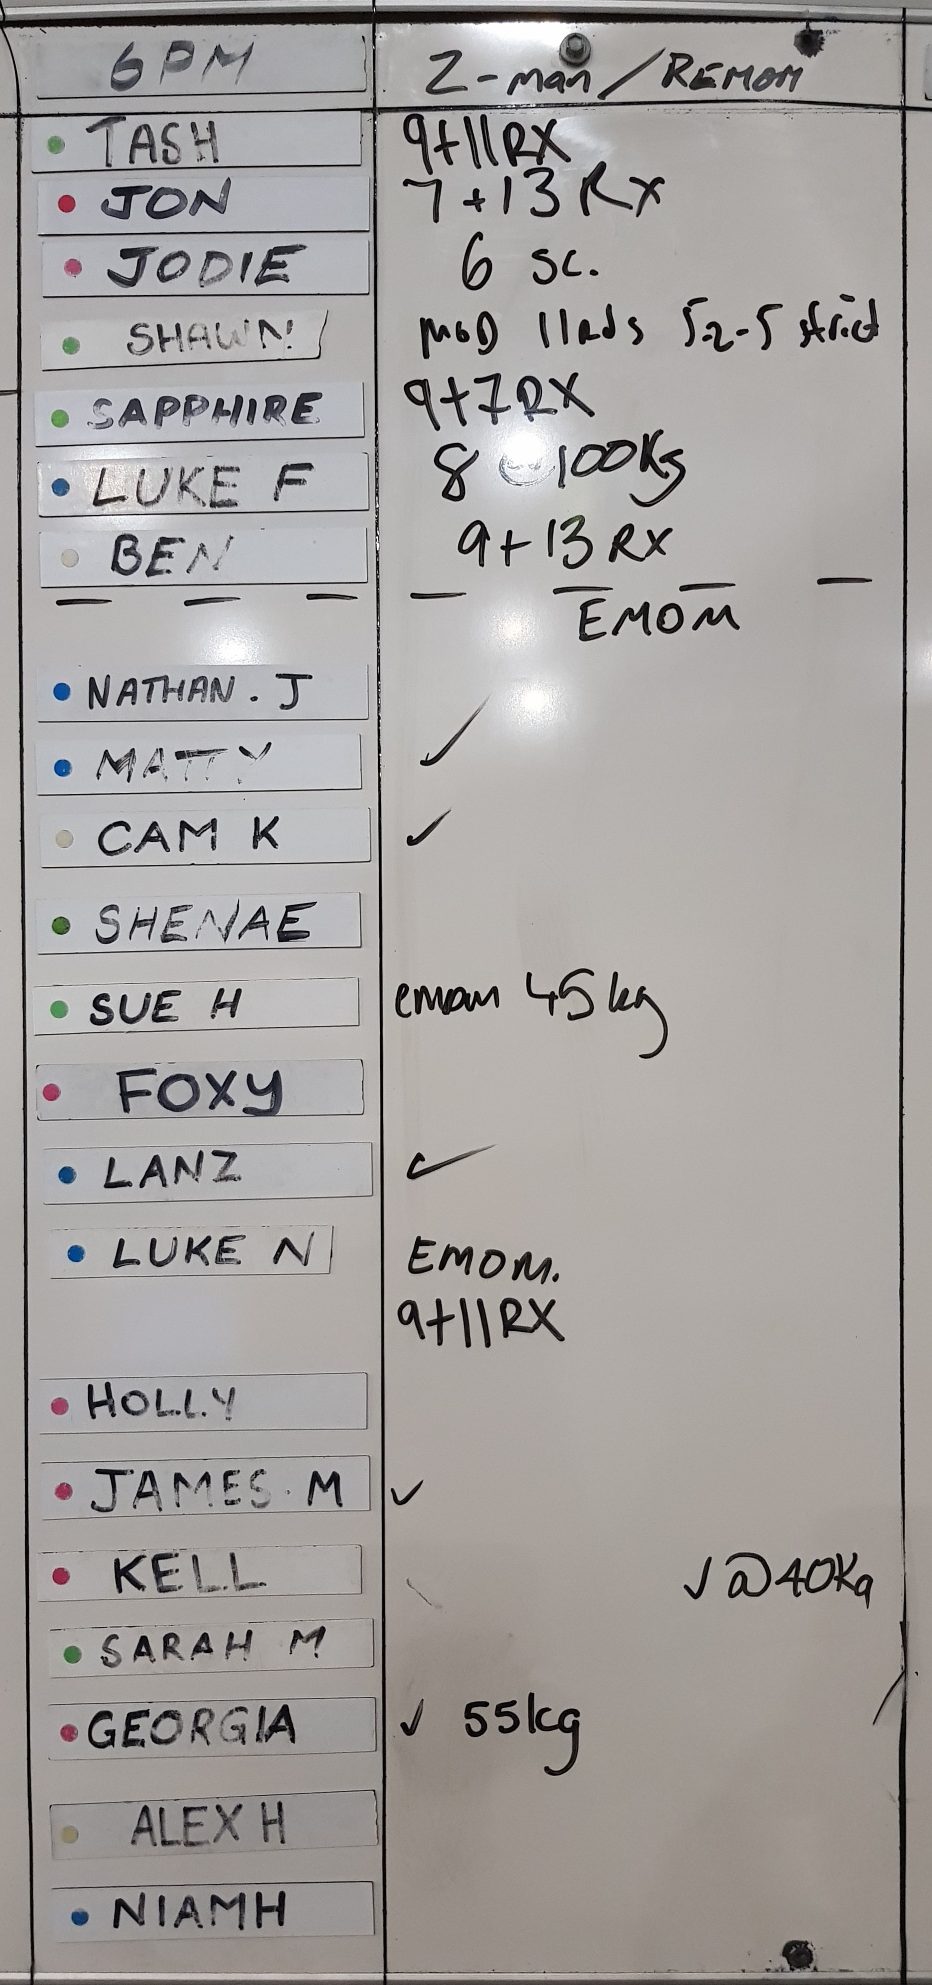 6PM Z-man/REMOM
TASH 9+11RX
JON 7+13 RX
JODIE 6 sc.
SHAWN MOD 11rds 5-2-5 strict
SAPPHIRE 9+7RX
LUKE F 8 100Kg
BEN 9+13 RX
EMOM
NATHAN. J
MATTY ✓
CAM K ✓
SHENAE
SUE H emom 45kg
FOXY
LANZ ✓
LUKE N EMOM.
9+11RX
HOLLY
JAMES. M ✓
KELL ✓@40Kg
SARAH M
GEORGIA ✓ 55kg
ALEX H
NIAMH